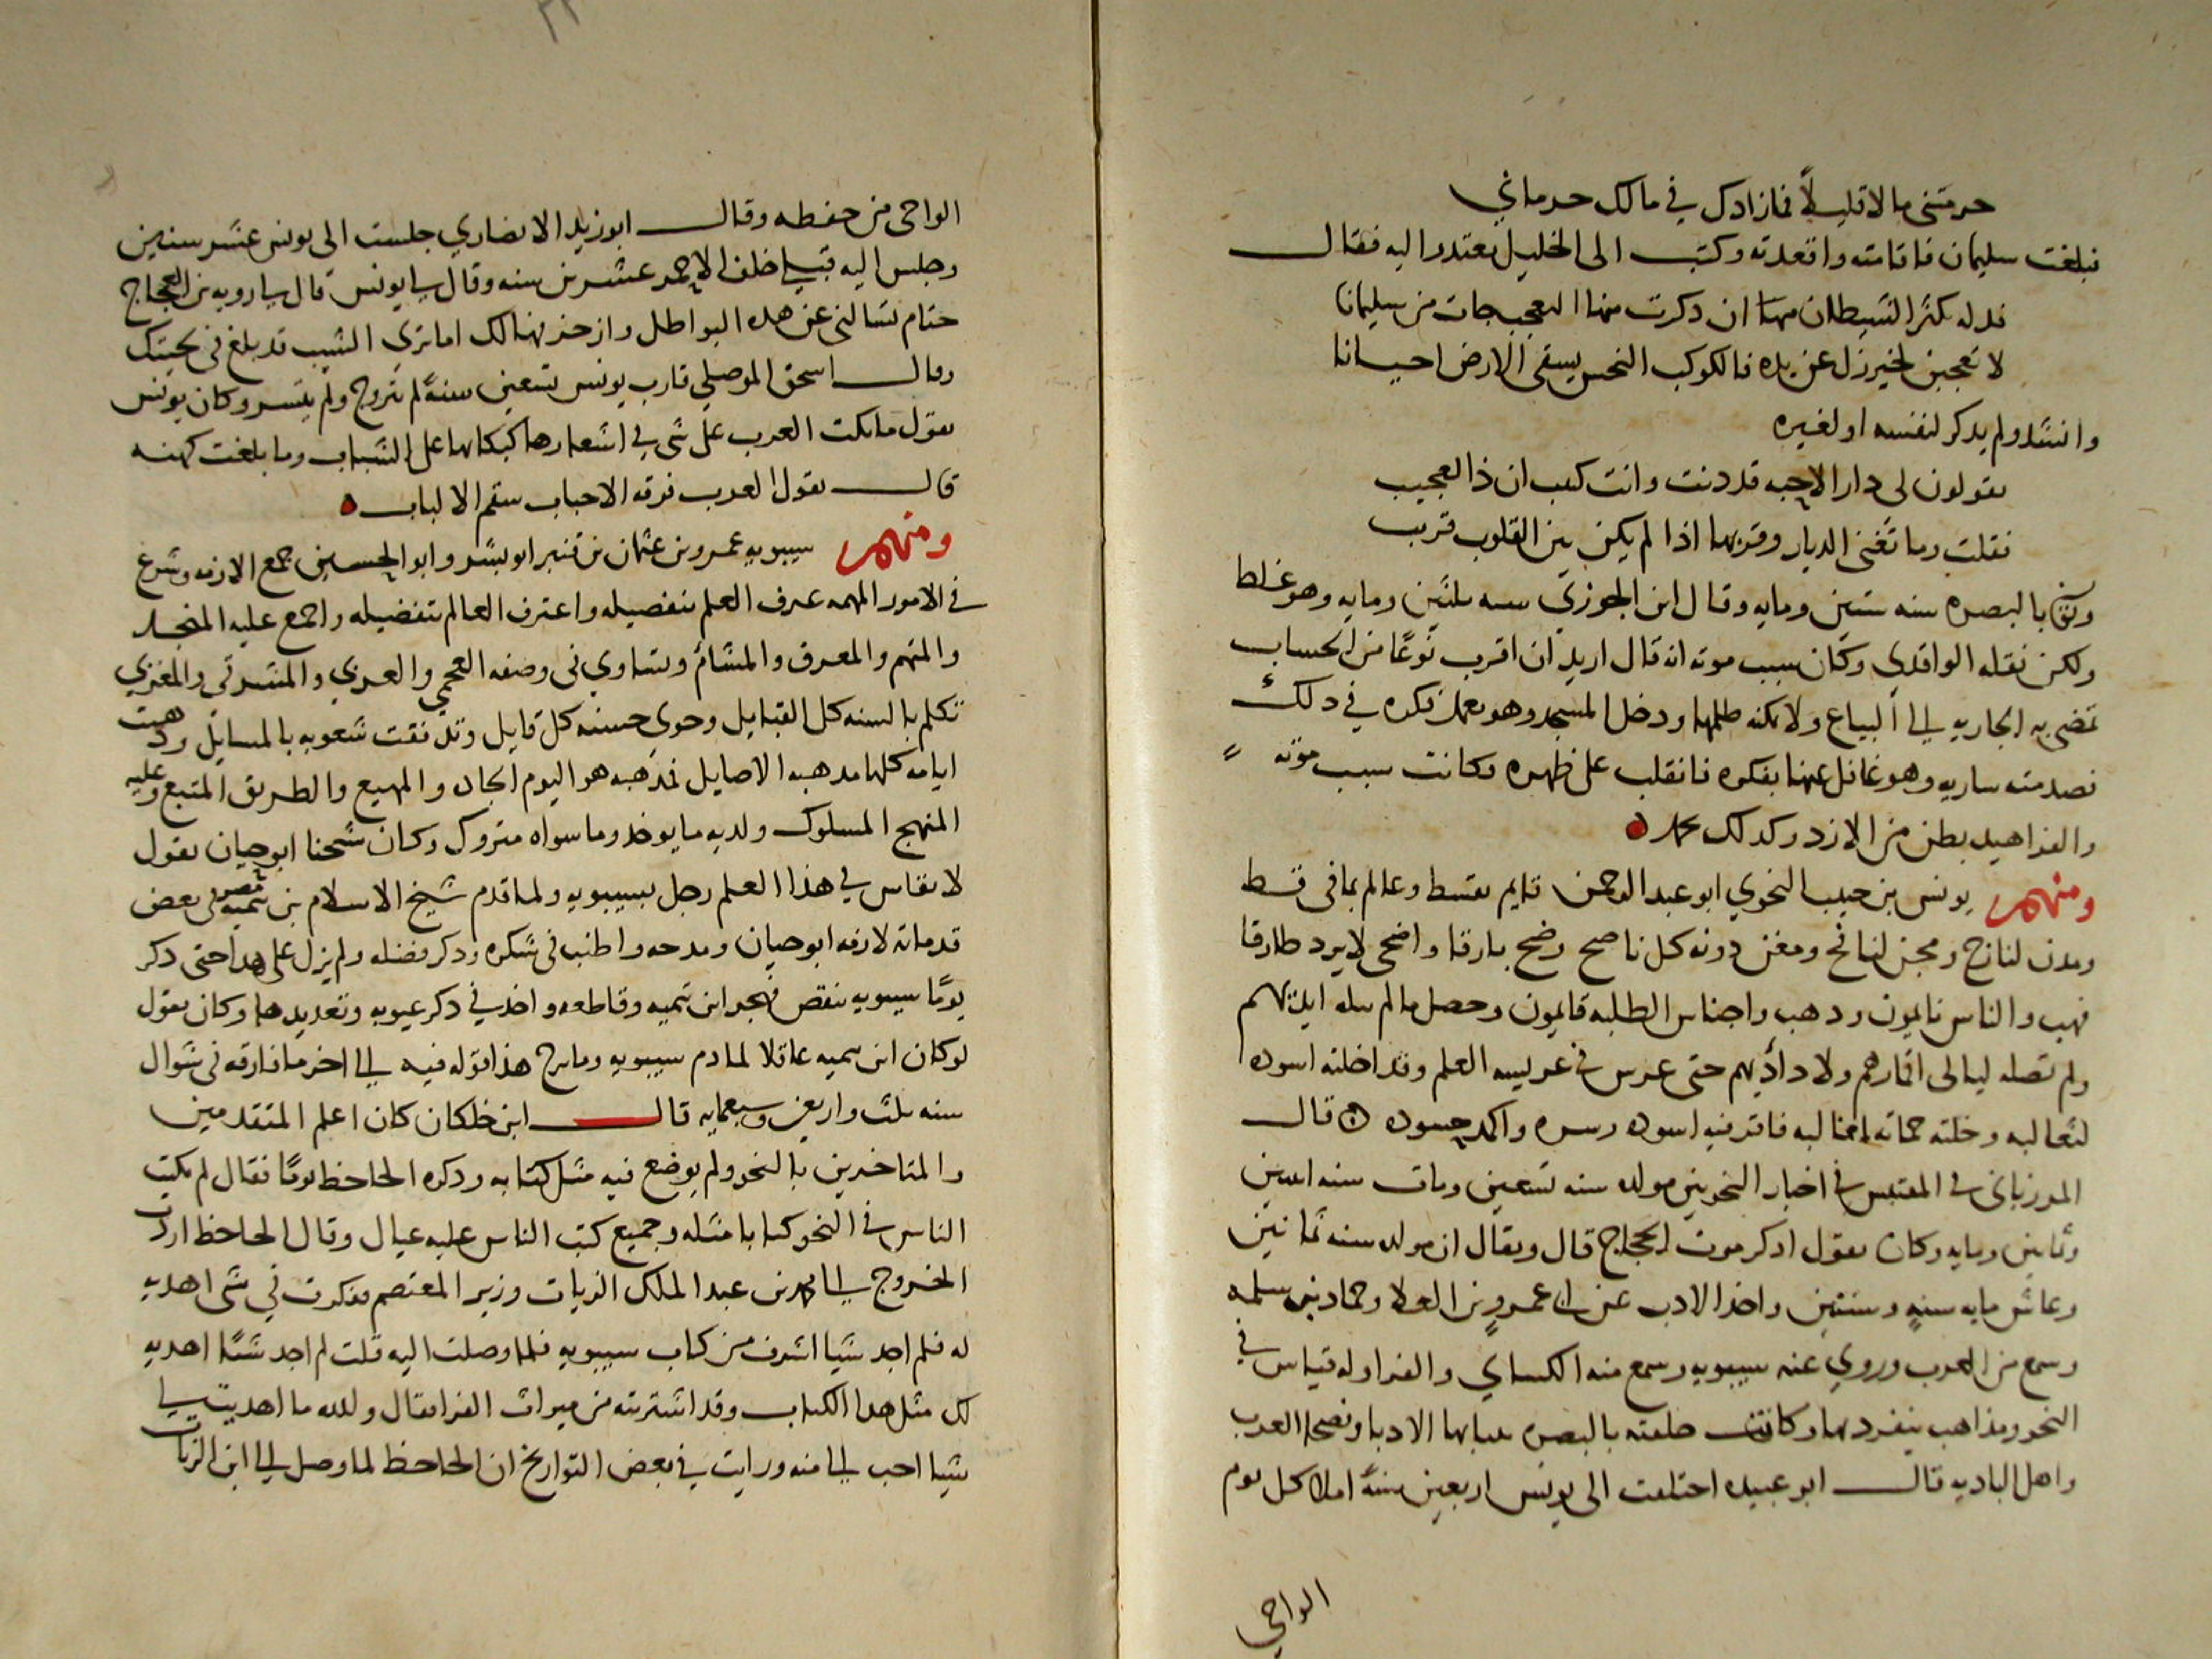 حرمتنى مالا قليلاً فمازادك في مالك حرماني
فبلغت سليمان فاقامته واقعدته وكتب الى الخليل يعتدر اليه فقال
زله يكثر الشيطان مها ان ذكرت منها العجب جات من سليمانا
لا تعجبن لخير زل عن يده فالكوكب النحس يسقى الارض احيانا
وانشد ولم يدكر لنفسه او لغيره
يقولون لى دار الاحبه قد دنت وانت كيب ان ذا لعجيب
فقلت وما تغنى الديار وقربها اذا لم يكن بين القلوب قريب
وتوفى بالبصره سنه ستين ومايه وقال ابن الجوزي سنه ثلثين ومايه وهو غلط
ولكن نقله الواقدي وكان سبب موته انه قال اريد ان اقرب نوعًا من الحساب
تمضى به الجاريه الى البياع ولا يمكنه ظلمها ودخل المسجد وهو يعمل فكره في ذلك
فصدمته ساريه وهو غافل عنها بفكره فانقلب على ظهره فكانت سبب موته
والفراهيد بطن من الازد وكدلك محمد
ومنهم يونس بن حبيب النحوي ابو عبد الرحمن قايم بقسط وعالم بما فى قسط
ومدن لنازح ومجن لنائح ومغن دونه كل ناصح وضح بارقا واضحى لا يرد طارقا
فهب والناس نايمون ودهب واجناس الطلبه قايمون وحصل مالم ايديهم
ولم تصله ليالى اقمارهم ولا دآديهم حتى عرس في عريسه العلم وقد اخلته اسوده
لثعالبه وخلته حماته لمخالبه فافترفيه اسوده وسره واكمد حسوده قال
المرزبانى فى المقتبس في اخبار النحويين مولده سنه تسعين ومات سنه اثنين
وثمانين ومايه وكان يقول اذكر موت الحجاج قال ويقال ان مولده سنه ثمانين
وعاش مايه سنهٍ وسنتين واخذ الادب عن ابى عمرو بن العلا وحماد بن سلمه
وسمع من العرب وروي عنه سيبويه وسمع منه الكساي والفرا وله قياس في
النحو ومذاهب ينفرد بها وكانت حلقته بالبصره ينتابها الادبا وفصحا العرب
واهل الباديه قال ابو عبيده اختلفت الى يونس اربعين سنةً املا كل يوم
الواحي
الواحى من حفظه وقال ابو زيد الانصاري جلست الى يونس عشر سنين
وجلس اليه قبلي خلف الاحمر عشرين سنه وقال لى يونس قال لى رويه بن العجاج
حتام تسالنى عن هده البواطل وازخرفها لك اما ترى الشيب قد بلغ فى لحيتك
وقال اسحق الموصلي قارب يونس تسعين سنةً لم يتزوج ولم يتسر وكان يونس
يقول ما بكت العرب على شى في اشعارها كبكايها على الشباب وما بلغت كنهه
قال يقول العرب فرقه الاحباب سقم الالباب
ومنهم سيبويه عمرو بن عثمان بن قنبر ابو بشر وابو الحسين جمع الازمه وشرع
في الامور المهمه عرف العلم بتفصيله واعترف العالم بتفضيله واجمع عليه المنجد
والمتهم والمعرق والمشائم وتساوي فى وصفه العجمي والعربي والمشرقي والمغربي
تكلم بالسنه كل القبايل وحوى حسنه كل قايل وتدفقت شعوبه بالمسايل ودهبت
ايامه كلها مدهبه الاصايل فمذهبه هو اليوم الجاده والمهيع والطريق المتبع وعليه
المنهج المسلوك ولديه ما يوخد وما سواه متروك وكان شيخنا ابو حيان يقول
لا يقاس في هذا العلم رجل بسيبويه ولما قدم شيخ الاسلام بن تيميه مصر فى بعض
قدماته لازمه ابو حيان ومدحه واطنب فى شكره وذكر فضله ولم يزل على هدا حتى دكر
يومًا سيبويه بنقص فهجر ابن تيميه وقاطعه واخد في ذكر عيوبه وتعديدها وكان يقول
لوكان ابن تيميه عاقلا لما دم سيبويه وما برح هذا قوله فيه الى اخر ما فارقه فى شوال
سنه ثلث واربعين وسبعمايه قال ابن خلكان كان اعلم المتقدمين
والمتاخرين بالنحو ولم يوضع فيه مثل كتابه وذكره الجاحظ يومًا فقال لم يكتب
الناس في النحو كتابا مثله وجميع كتب الناس عليه عيال وقال الجاحظ اردت
الخروج الى محمد بن عبد الملك الزيات وزير المعتصم ففكرت في شى اهديه
له فلم اجد شيا اشرف من كتاب سيبويه فلما وصلت اليه قلت لم اجد شيًا اهديه
لك مثل هدا الكتاب وقد اشتريته من ميراث الفرا فقال والله ما اهديت لى
شيا احب الى منه ورايت في بعض التواريخ ان الجاحظ لما وصل الى ابن الزيات